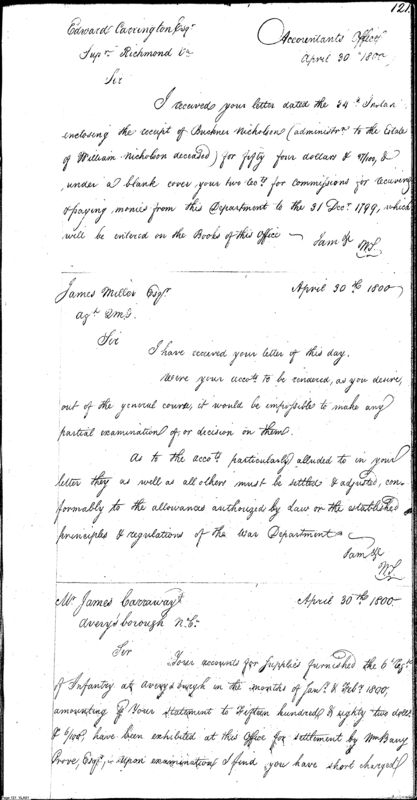 121
Edward Carrington Esqr
Accountants Office
Supr Richmond Va
April 30th 1800
Sir
I received your letter dated the 24th Instan
enclosing the receipt of Buckner Nicholson (administr to the Estate
of William Nicholson deceased) for fifty four dollars & 47/100, &
under a blank cover, your two accts for commissions for receiving
& paying monies from this Department to the 31 Decr 1799, which
will be entered on the Books of this Office —
I am &c
WS.
James Miller Esqr
April 30th 1800
agt Q.M.G.
Sir
I have received your letter of this day.
Were your accots to be rendered, as you desire,
out of the general course, it would be impossible to make any
partial examination of, or decision on them.
As to the accots particularly alluded to in your
letter they as well as all others must be settled & adjusted, con-
formably to the allowances authorized by Law or the established
principles & regulations of the War Department —
I am &c
WS.
Mr James Carraway
April 30th 1800
Avery's borough N.C.
Sir
Your accounts for supplies furnished the 6 Regt
of Infantry at Avery's burgh in the months of Jany & Feby 1800,
amounting Your statement to Fifteen hundred & eighty two dolls
& 6/100, have been exhibited at this Office for settlement by Mr
Esqr, upon examination I find you have short charged